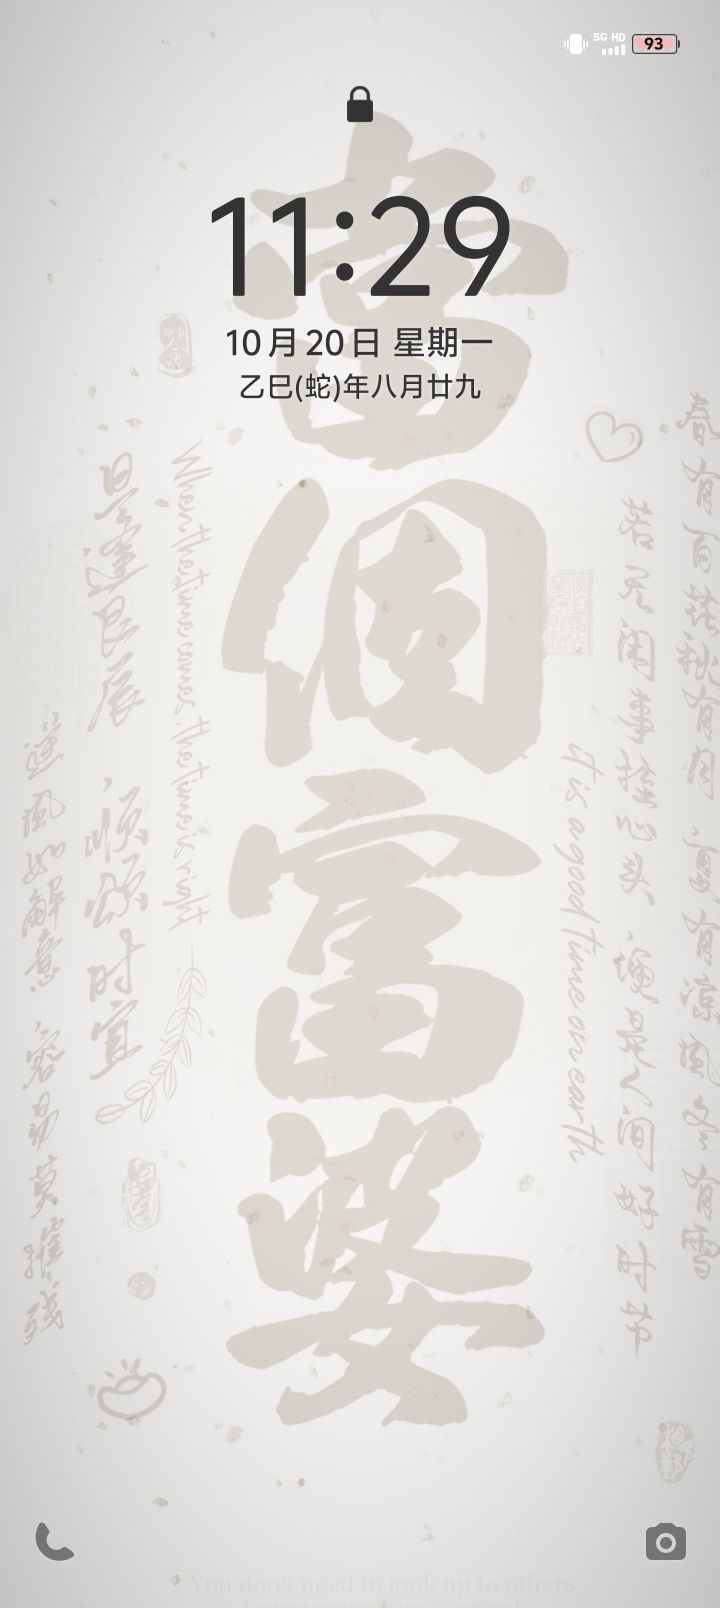 5G HD
93
11:29
10月20日 星期一
乙巳(蛇)年八月廿九
當個富婆
春有百花秋有月，夏有凉风冬有雪
若无闲事挂心头，便是人间好时节
it is a good time on earth
When the time comes, the time is right
景逢良辰，顺颂时宜
逆风如解意，容易莫摧残
You don't need to look up to others